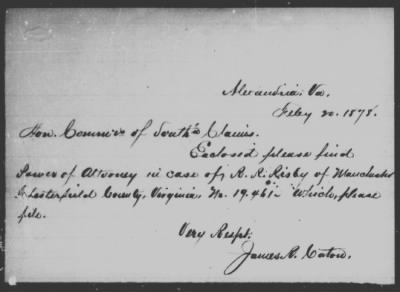 Alexandria. Va.
Feby 20. 1878.
Hon. Commrs of Southn Claims.
Enclosed please find
Power of Attorney in case of R. R. Risby of Manchester
Chesterfield County, Virginia, No. 19.461 - Which, please
file.
Very Respt.
James R. Caton.